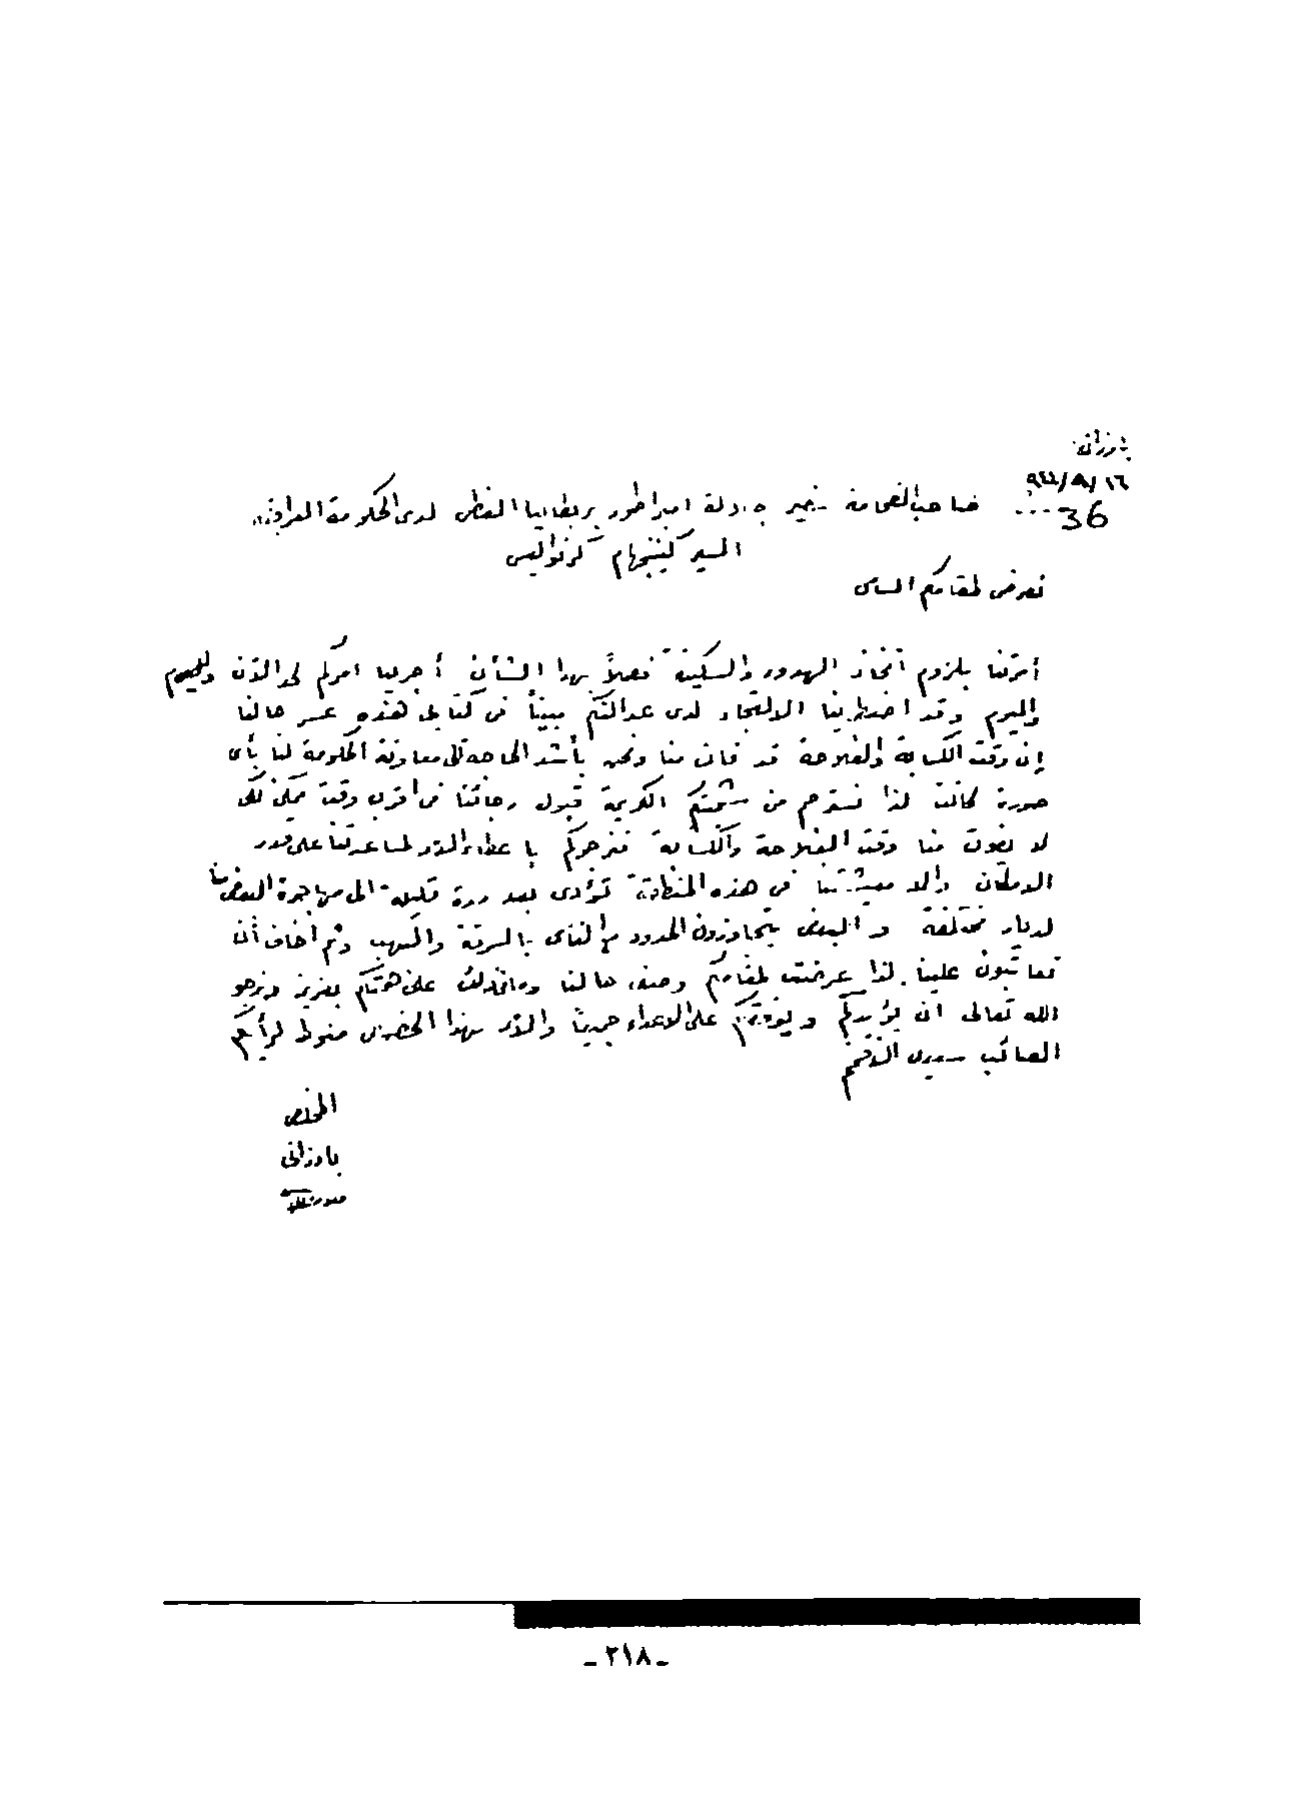 بارزان
٩٤٤/٨/١٦
36
صاحب الفخامة سفير جلالة امبراطور بريطانيا العظمى لدى الحكومة العراقية
السير كينهام كرنواليس
نعرض لمقامكم السامي
أمرتنا بلزوم اتخاذ الهدوء والسكينة فعلاً بهذا الشأن أجرينا امركم لحد الآن ولليوم
واليوم وقد اضطرينا الالتجاء لدى عدالتكم مبيناً في كتابي هذه عسر حالنا
إن وقت الكسابة والفلاحة قد فات منا ونحن بأشد الحاجة الى معاونة الحكومة لنا بأى
صورة كانت لذا نسترحم من شيمتكم الكريمة قبول رجائنا في اقرب وقت ممكن لكى
لا يفوت منا وقت الفلاحة والكسابة فنرجوكم با عطاء الامر لمساعدتنا على قدر
الامكان والا معيشتنا في هذه المنطقة تؤدى بعد مدة قليلة الى مهاجرة البعض منا
لديار مختلفة و البعض يتجاوزون الحدود مع الناس بالسرقة والنهب وثم اخاف أن
تعاتبون علينا. لذا عرضت لمقامكم وصف حالنا وما ذلك على همتكم بعزيز ونرجو
الله تعالى ان يؤيدكم ويوفقكم على الاعداء جميعا والامر بهذا الخصوص منوط لرأيكم
الصائب سيدى الافخم
المخلص
بارزانى